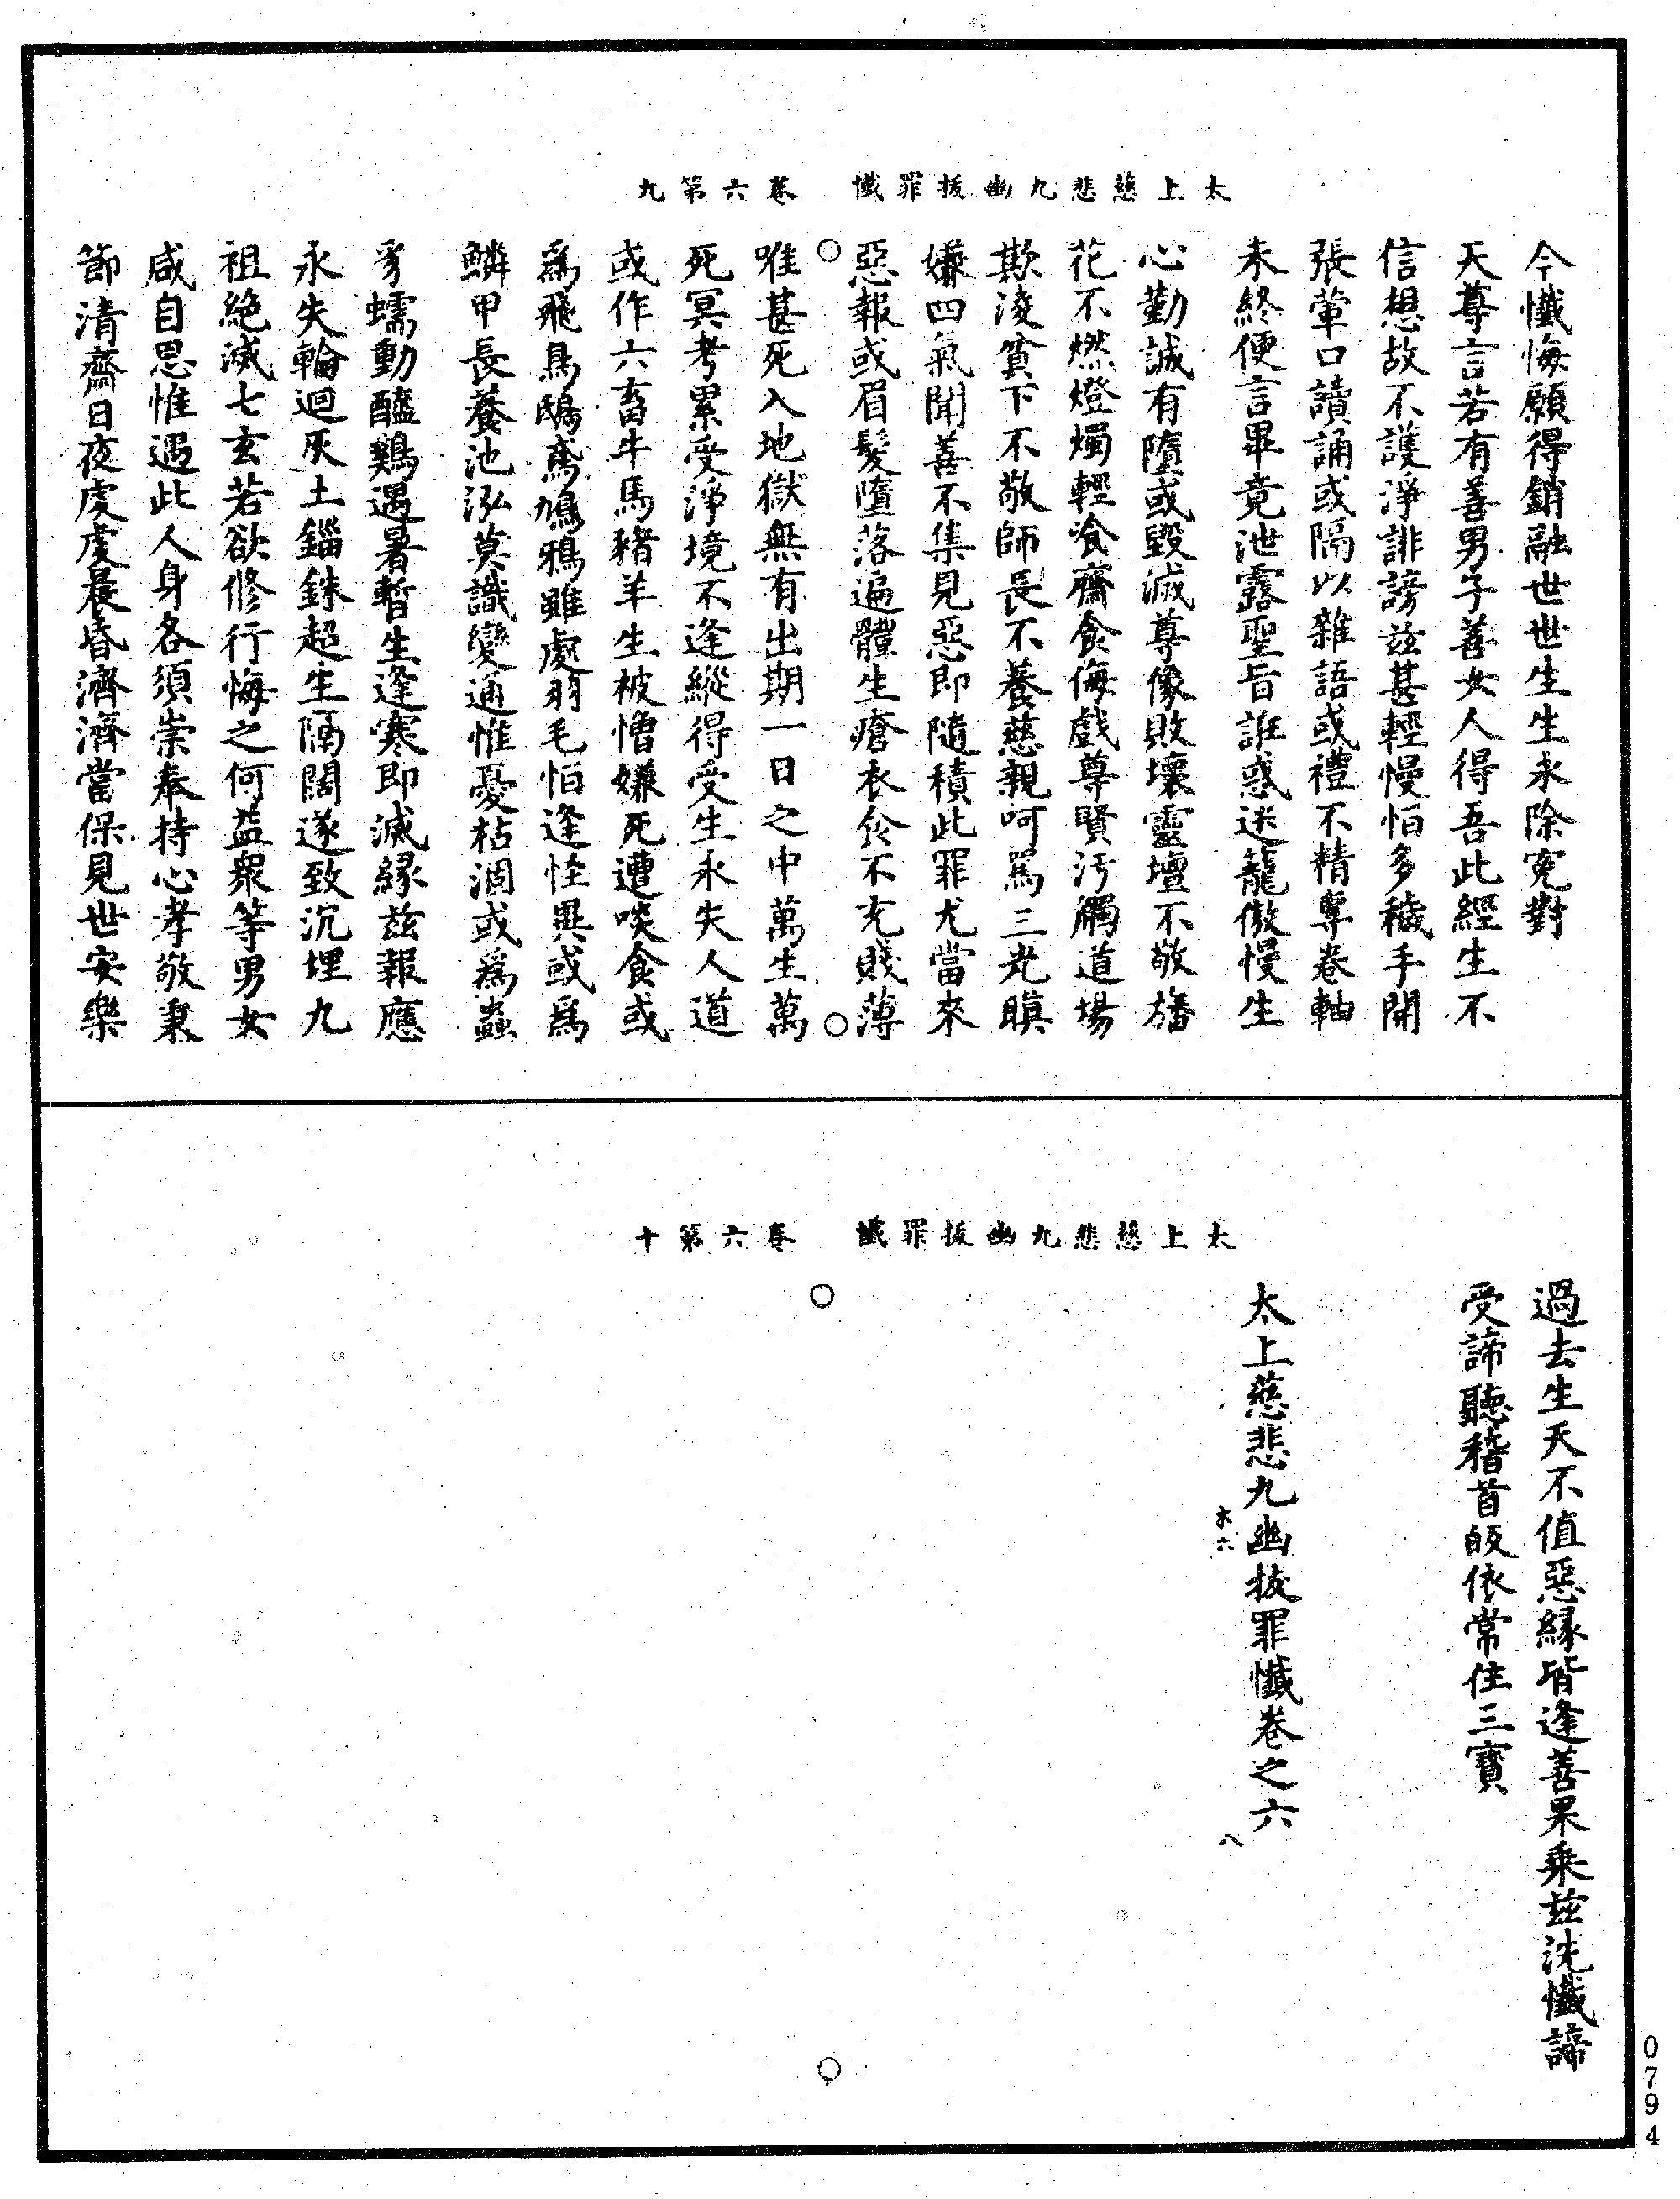 太上慈悲九幽拔罪懺　卷六第九
今懺悔願得銷融世世生生永除寃對
天尊言若有善男子善女人得吾此經生不
信想故不護淨誹謗兹甚輕慢怕多穢手開
張葷口讀誦或隔以雜語或禮不精專卷軸
未終便言畢竟泄露聖旨誑惑迷籠傲慢生
心勤誠有墮或毀滅尊像敗壞靈壇不敬旛
花不燃燈燭輕飡齋食侮戲尊賢汚觸道場
欺淩貧下不敬師長不養慈親呵罵三光瞋
嫌四氣聞善不集見惡即隨積此罪尤當來
惡報或眉髮墮落遍體生瘡衣食不充賤薄
唯甚死入地獄無有出期一日之中萬生萬
死冥考累受淨境不逢縱得受生永失人道
或作六畜牛馬豬羊生被憎嫌死遭啖食或
爲飛鳥鴟鳶鳩鴉雖處羽毛怕逢怪異或爲
鱗甲長養池泓莫識變通惟憂枯涸或爲蟲
豸蠕動醯鷄遇暑暫生逢寒即滅縁兹報應
永失輪迴灰土錙銖超生隔闊遂致沉埋九
祖絶滅七玄若欲修行悔之何益衆等男女
咸自思惟遇此人身各須崇奉持心孝敬秉
節清齋日夜虔虔晨昏濟濟當保見世安樂
太上慈悲九幽拔罪懺　卷六第十
過去生天不值惡縁皆逢善果乘兹洗懺諦
受諦聽稽首皈依常住三寶
太上慈悲九幽拔罪懺卷之六
木六
八
0794